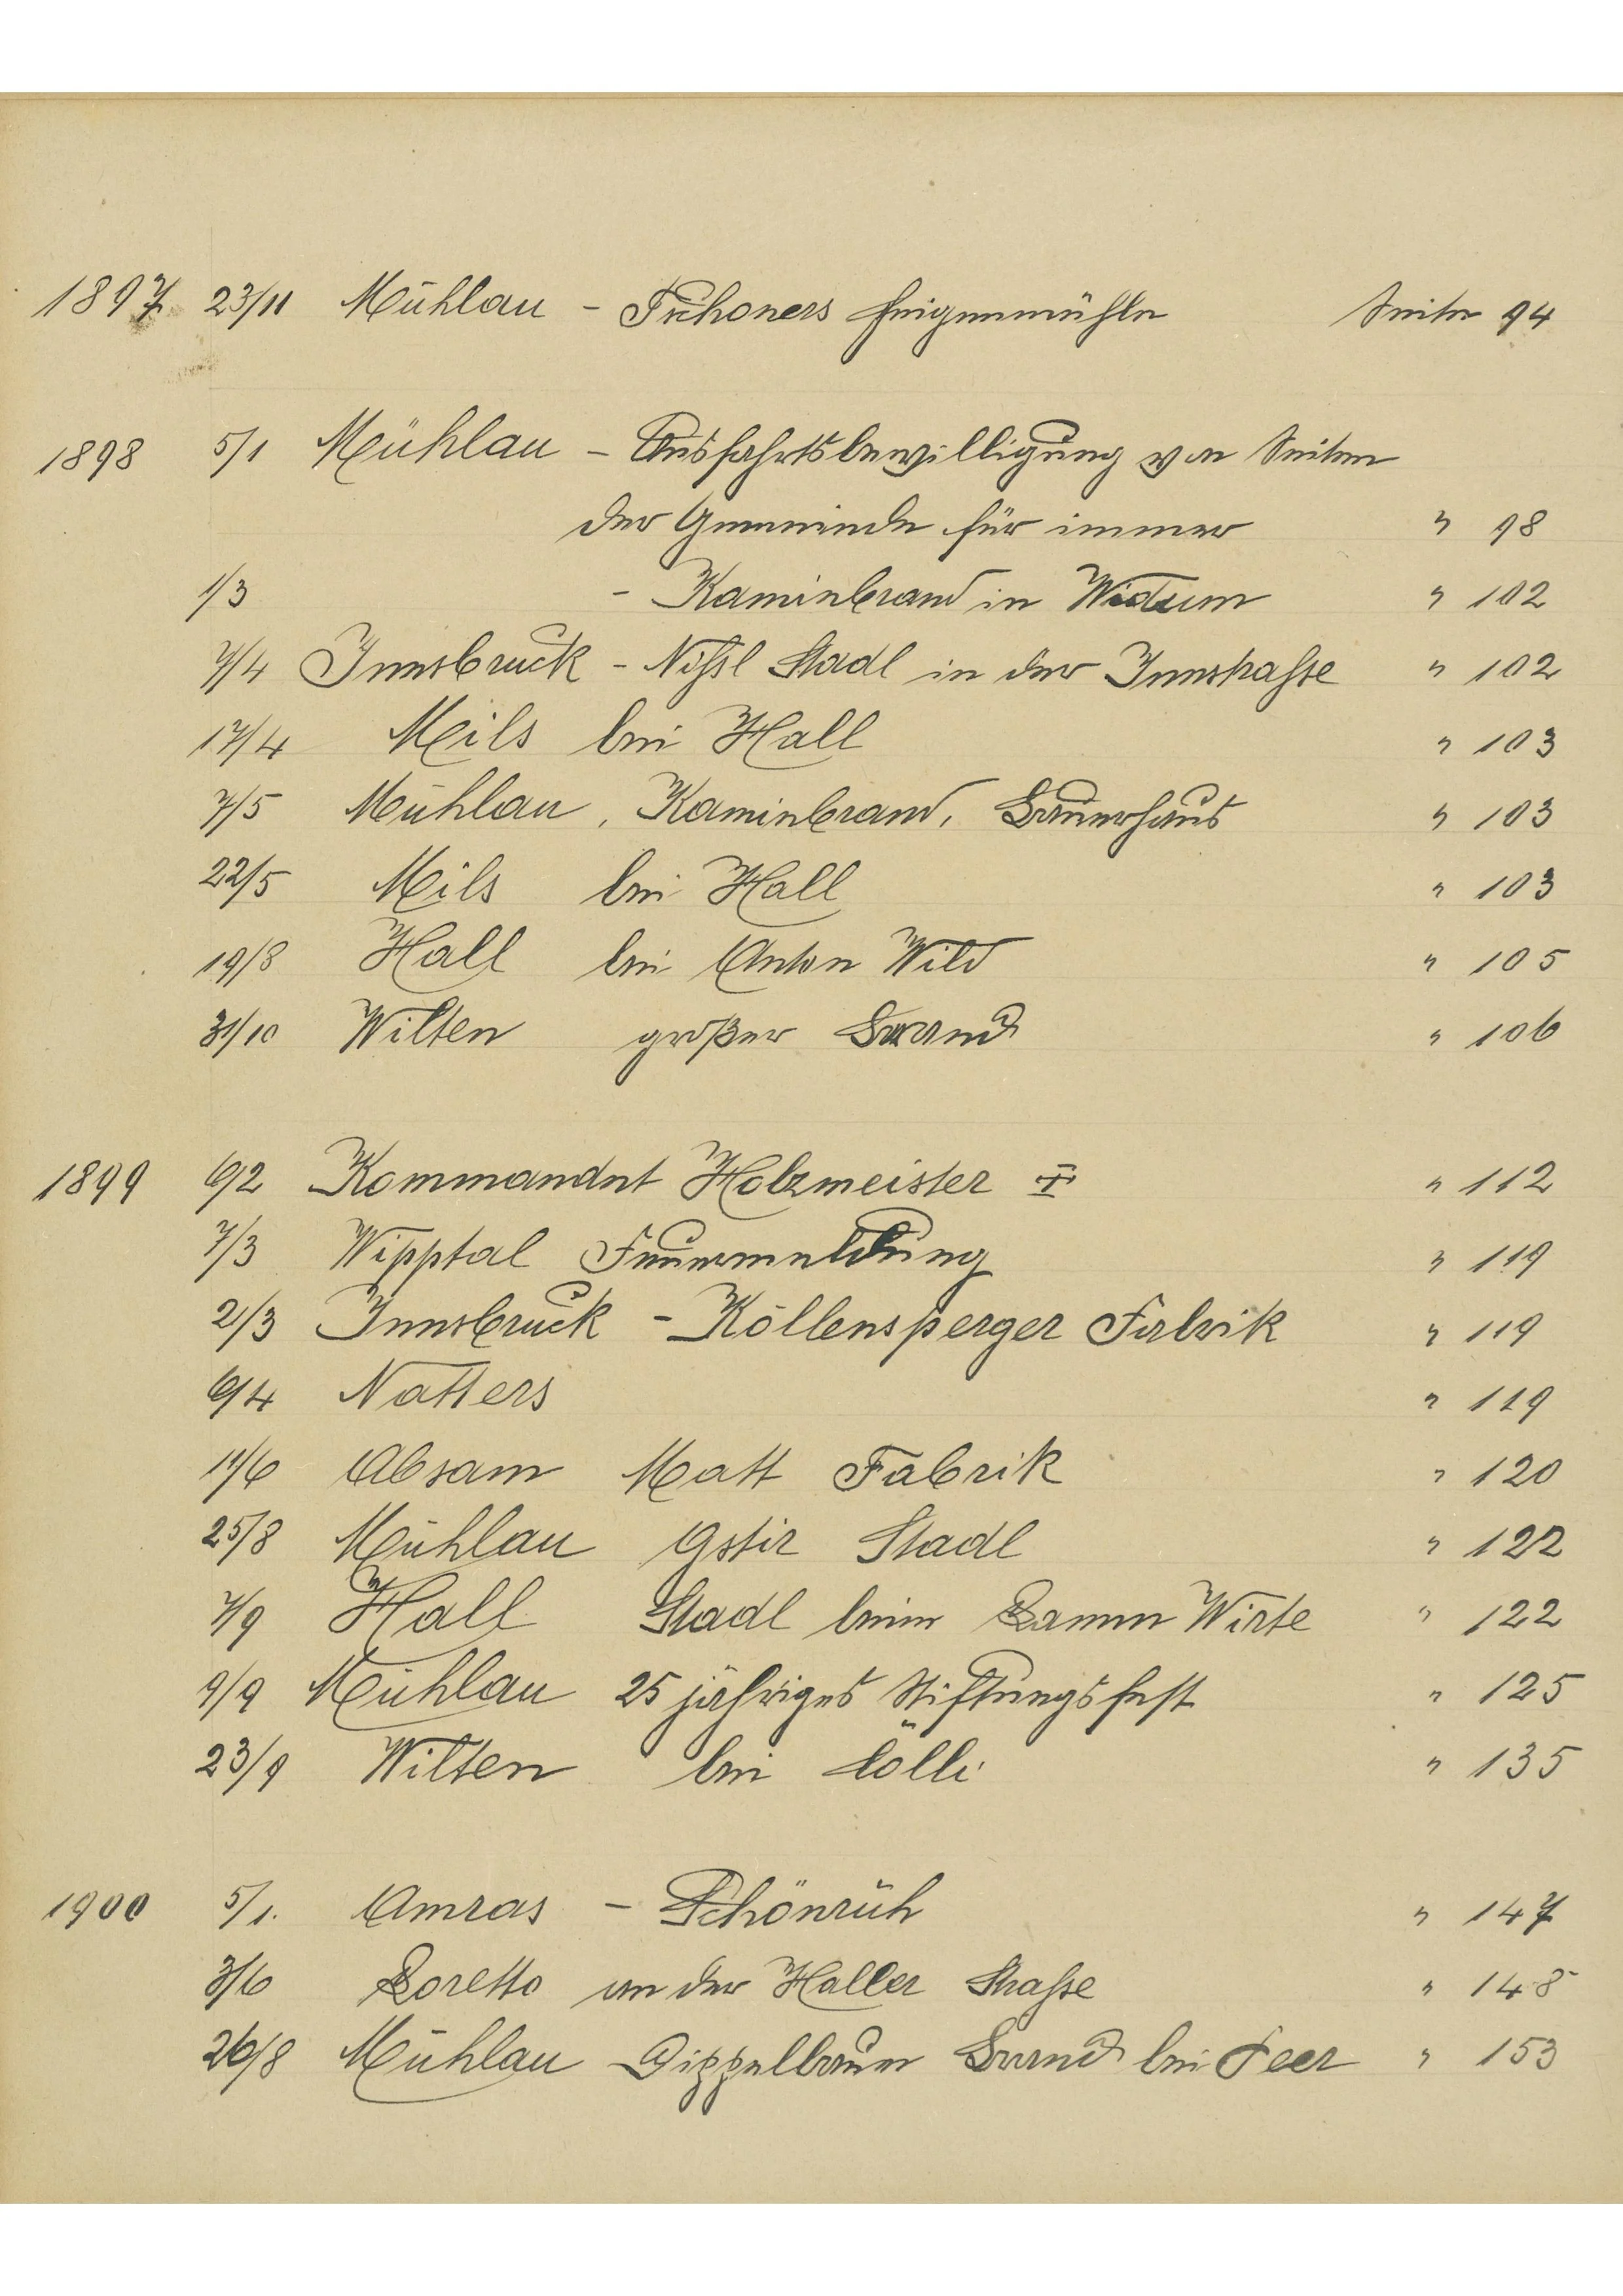 1897 23/11 Mühlau - Tschoners Feigenmühle Seite 94
1898 5/1 Mühlau - Ausfahrtsbewilligung von Seiten
der Gemeinde für immer " 98
1/3 - Kaminbrand in Widum " 102
7/4 Innsbruck - Nißl Stadl in der Innstraße " 102
17/4 Mils bei Hall " 103
7/5 Mühlau, Kaminbrand, Bauernhaus " 103
22/5 Mils bei Hall " 103
19/8 Hall bei Anton Wild " 105
31/10 Wilten großer Brand " 106
1899 6/2 Kommandnt Holzmeister ‡ " 112
7/3 Wipptal Feuermeldung " 119
2/3 Innsbruck - Köllensperger Fabrik " 119
6/4 Natters " 119
11/6 Absam Matt Fabrik " 120
25/8 Mühlau Gstir Stadl " 122
7/9 Hall Stadl beim Bamm Wirte " 122
9/9 Mühlau 25 jähriges Stiftungsfest " 125
23/9 Wilten bei Lölli " 135
1900 5/1. Amras - Schönruh " 147
3/6 Loretto an der Haller Straße " 148
26/8 Mühlau Dippelbaum Brand bei Feer " 153